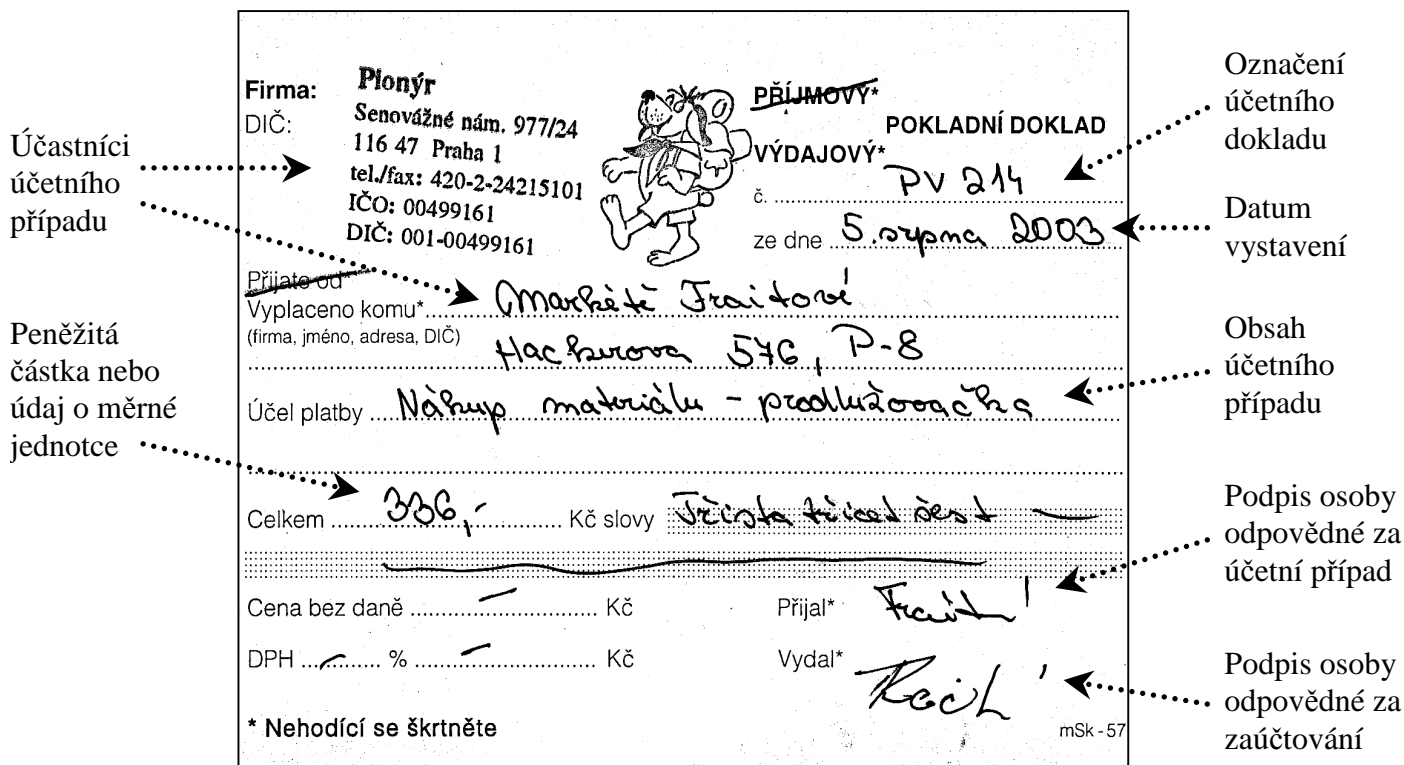 Účastníci
účetního
případu
Peněžitá
částka nebo
údaj o měrné
jednotce
Firma:
DIČ:
Pionýr
Senovážné nám. 977/24
116 47 Praha 1
tel./fax: 420-2-24215101
IČO: 00499161
DIČ: 001-00499161
PŘÍJMOVÝ*
POKLADNÍ DOKLAD
VÝDAJOVÝ*
č. PV 214
ze dne 5. srpna 2003
Přijato od*
Vyplaceno komu* Markétě Fraitové
(firma, jméno, adresa, DIČ)
576, P-8
Účel platby Nákup materiálu - prodlužovačka
Celkem 336,- Kč slovy Třista třicet šest
Cena bez daně Kč
Přijal*
DPH % Kč
Vydal*
* Nehodící se škrtněte
mSk - 57
Označení
účetního
dokladu
Datum
vystavení
Obsah
účetního
případu
Podpis osoby
odpovědné za
účetní případ
Podpis osoby
odpovědné za
zaúčtování